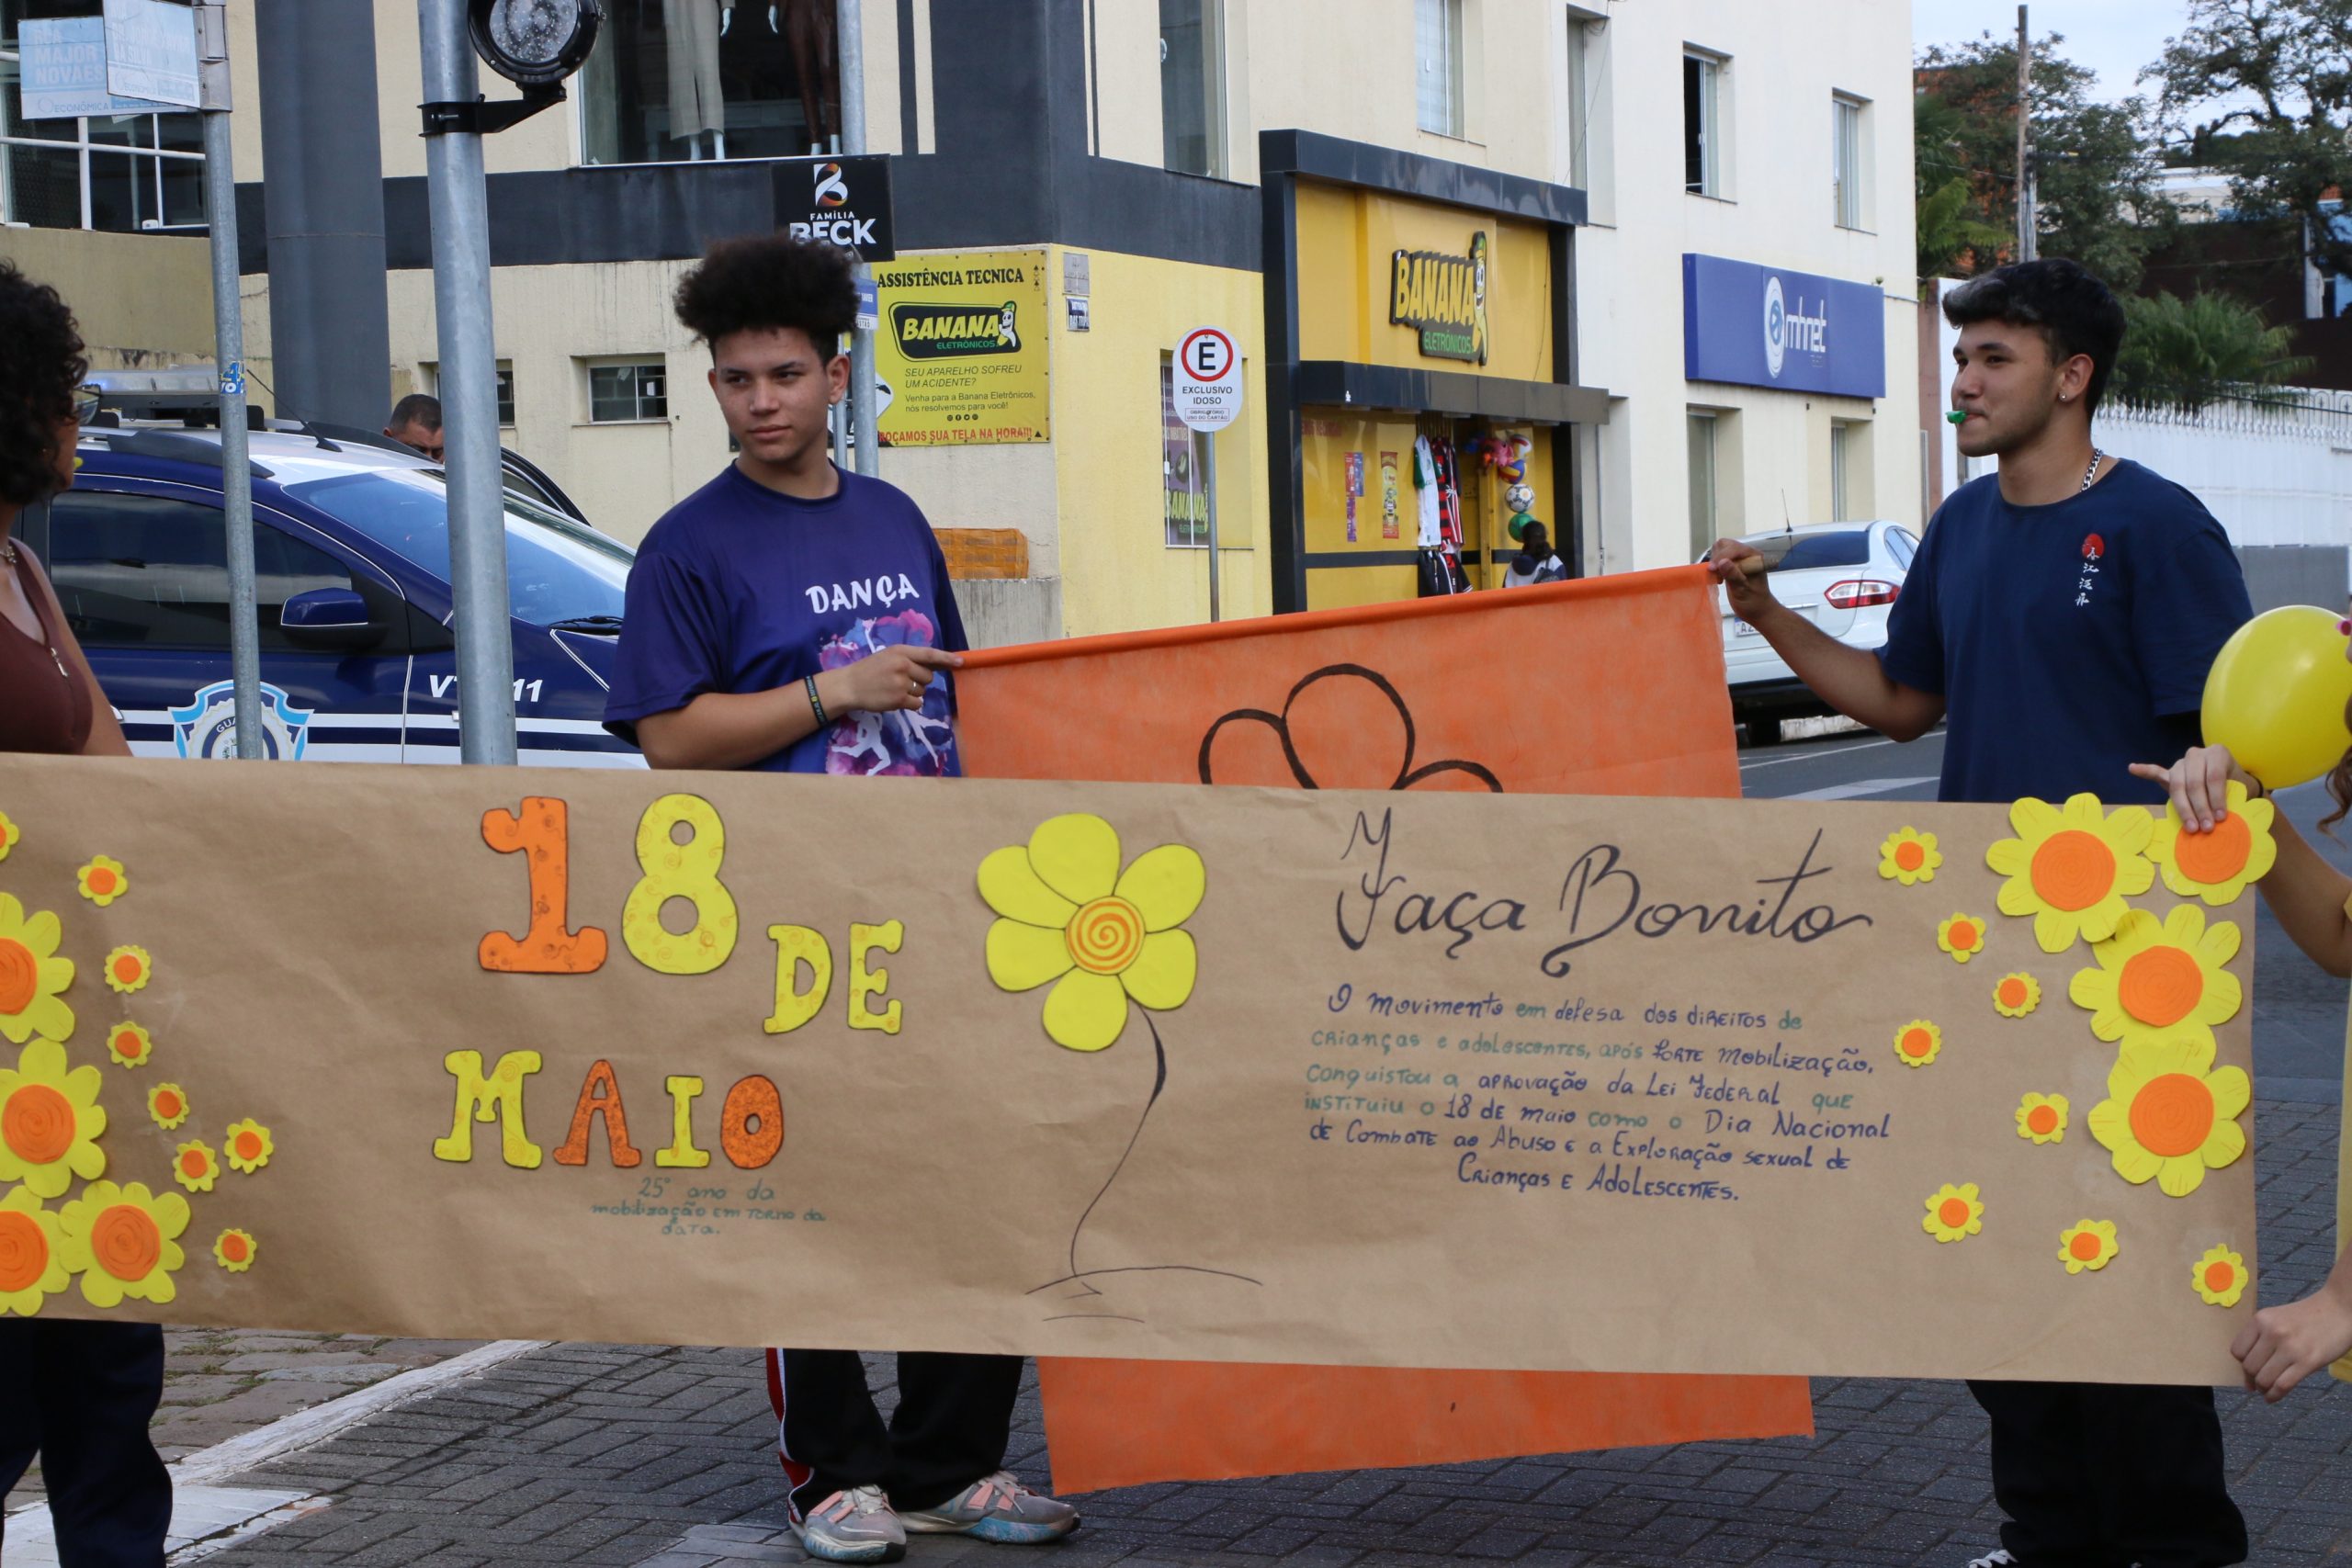 RUA
MAJOR
NOVAES
ECONÔMICA
FAMÍLIA
BECK
ASSISTÊNCIA TECNICA
BANANA
ELETRÔNICOS
SEU APARELHO SOFREU
UM ACIDENTE?
Venha para a Banana Eletrônicos,
nós resolvemos para você!
OCAMOS SUA TELA NA HORA!!!
E
EXCLUSIVO
IDOSO
OBRIGATÓRIO
USO DO CARTÃO
BANANA
ELETRÔNICOS
mhnet
BANANA
DANÇA
11
GUA
18 DE
MAIO
25° ano da
mobilização em torno da
data.
Faça Bonito
O movimento em defesa dos direitos de
crianças e adolescentes, após forte mobilização,
conquistou a aprovação da Lei Federal que
instituiu o 18 de maio como o Dia Nacional
de Combate ao Abuso e a Exploração sexual de
Crianças e Adolescentes.